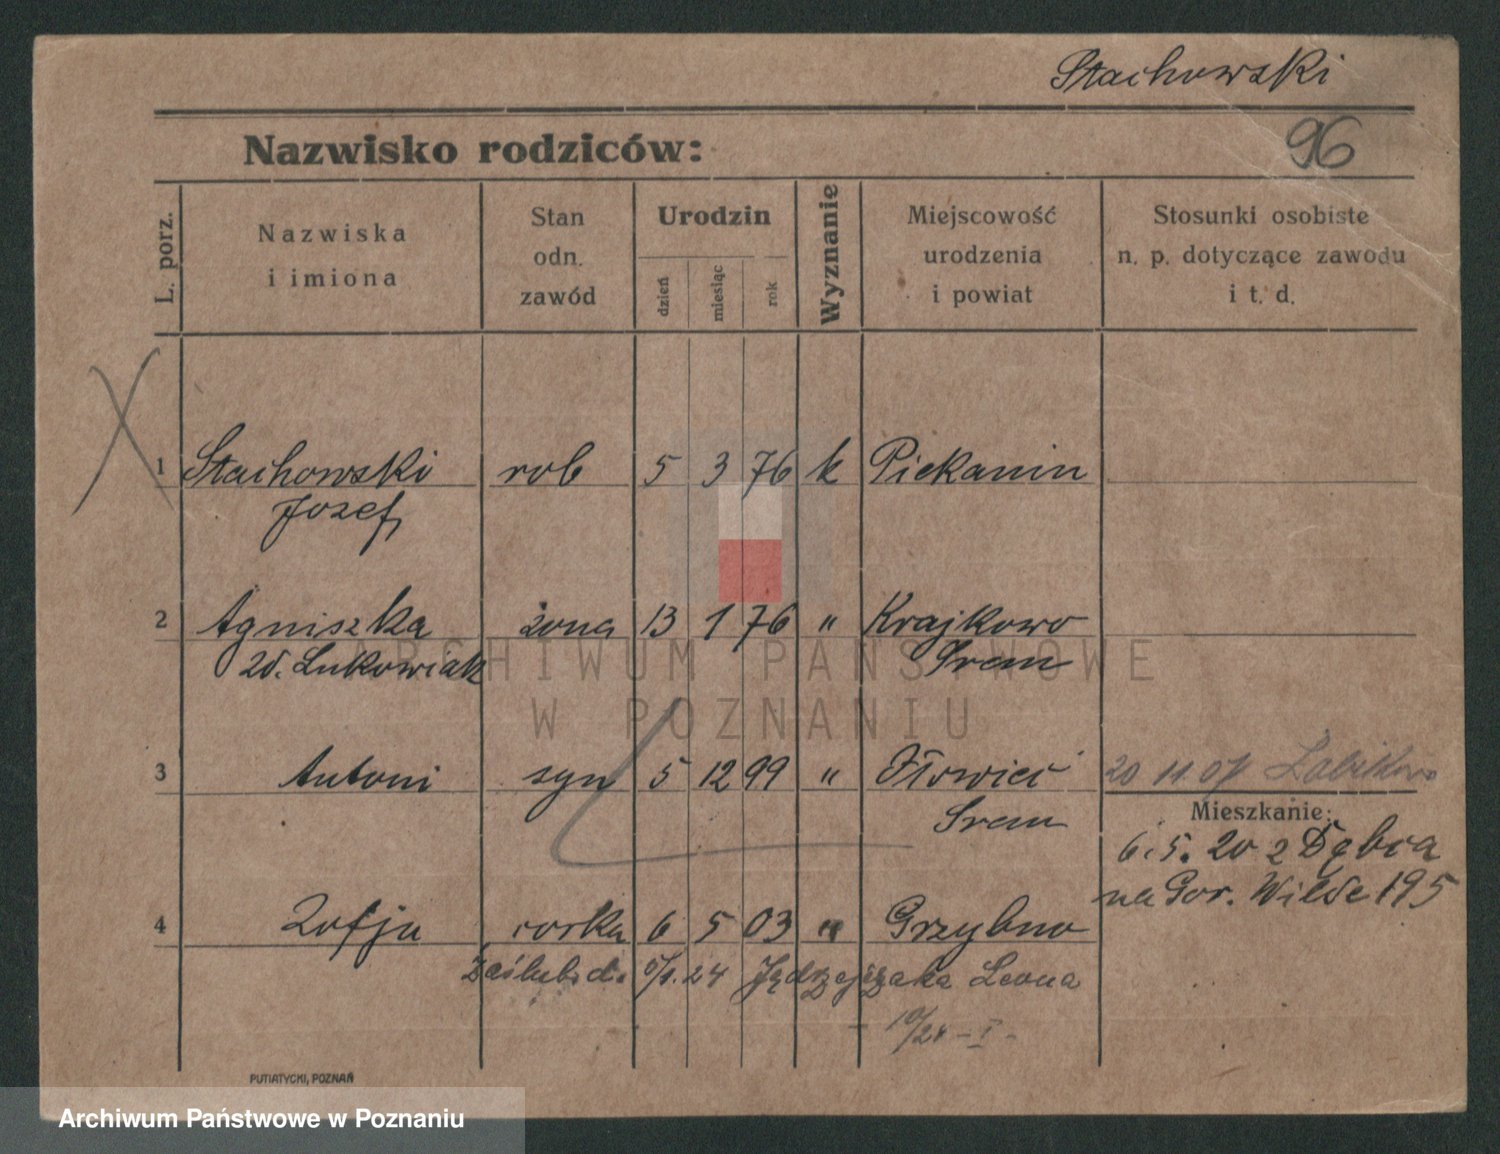 Stachowski
Nazwisko rodziców:
96
L. porz.
Nazwiska
i imiona
Stan
odn.
zawód
Urodzin
dzień
miesiąc
rok
Wyznanie
Miejscowość
urodzenia
i powiat
Stosunki osobiste
n. p. dotyczące zawodu
i t. d.
1 Stachowski rob 5 3 76 k Piekanin
Jozef
2 Agniszka żona 13 1 76 " Krajkowo
zd. Lukowiak Srem
ARCHIWUM PAŃSTWOWE
W POZNANIU
3 Antoni syn 5 12 99 " 20 11 07 Żabikowo
Srem
Mieszkanie:
6.5. 20 z Dębca
na Gor. Wilde 195
4 Zofja corka 6 5 03 " Grzybno
Zaślub. d. 24 Jędrzejczaka Leona
10/24 - I -
PUTIATYCKI, POZNAŃ
Archiwum Państwowe w Poznaniu